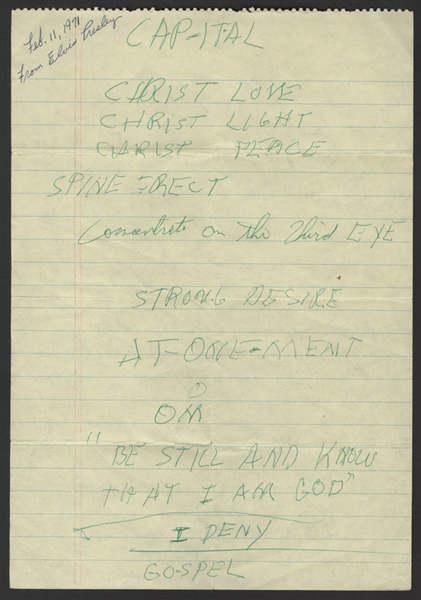 Feb. 11, 1971
From Elvis Presley
CAP-ITAL
CHRIST LOVE
CHRIST LIGHT
CHRIST PEACE
SPINE ERECT
Concentrate on the third EYE
STRONG DESIRE
AT-ONE-MENT
O
OM
"BE STILL AND KNOW
THAT I AM GOD"
I DENY
GO-SPEL